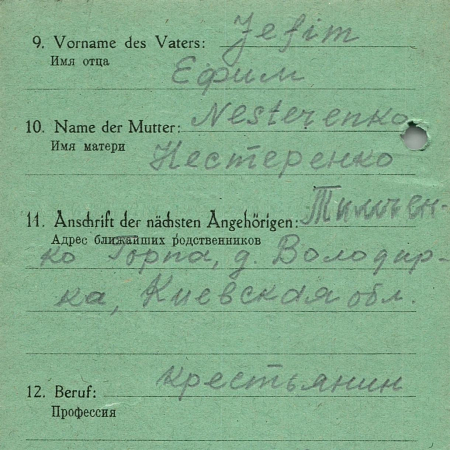 9. Vorname des Vaters: Jefim
Имя отца
Ефим
10. Name der Mutter: Nesterenko
Имя матери
Нестеренко
11. Anschrift der nächsten Angehörigen: Тимчен-
Адрес ближайших родственников
ко Горпа, д. Володир-
ка, Киевская обл.
12. Beruf: крестьянин
Профессия